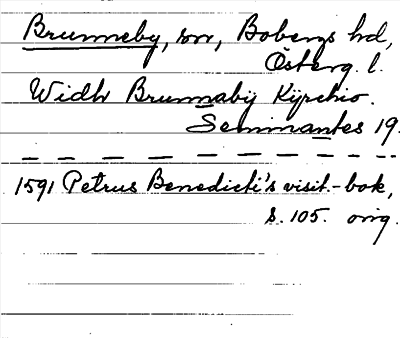 Brunneby, sn, Bobergs hd,
Österg. l.
Widh Brunnabÿ Kÿrchio.
Seminantes 19.
1591 Petrus Benedicti's visit.-bok,
s. 105. orig.